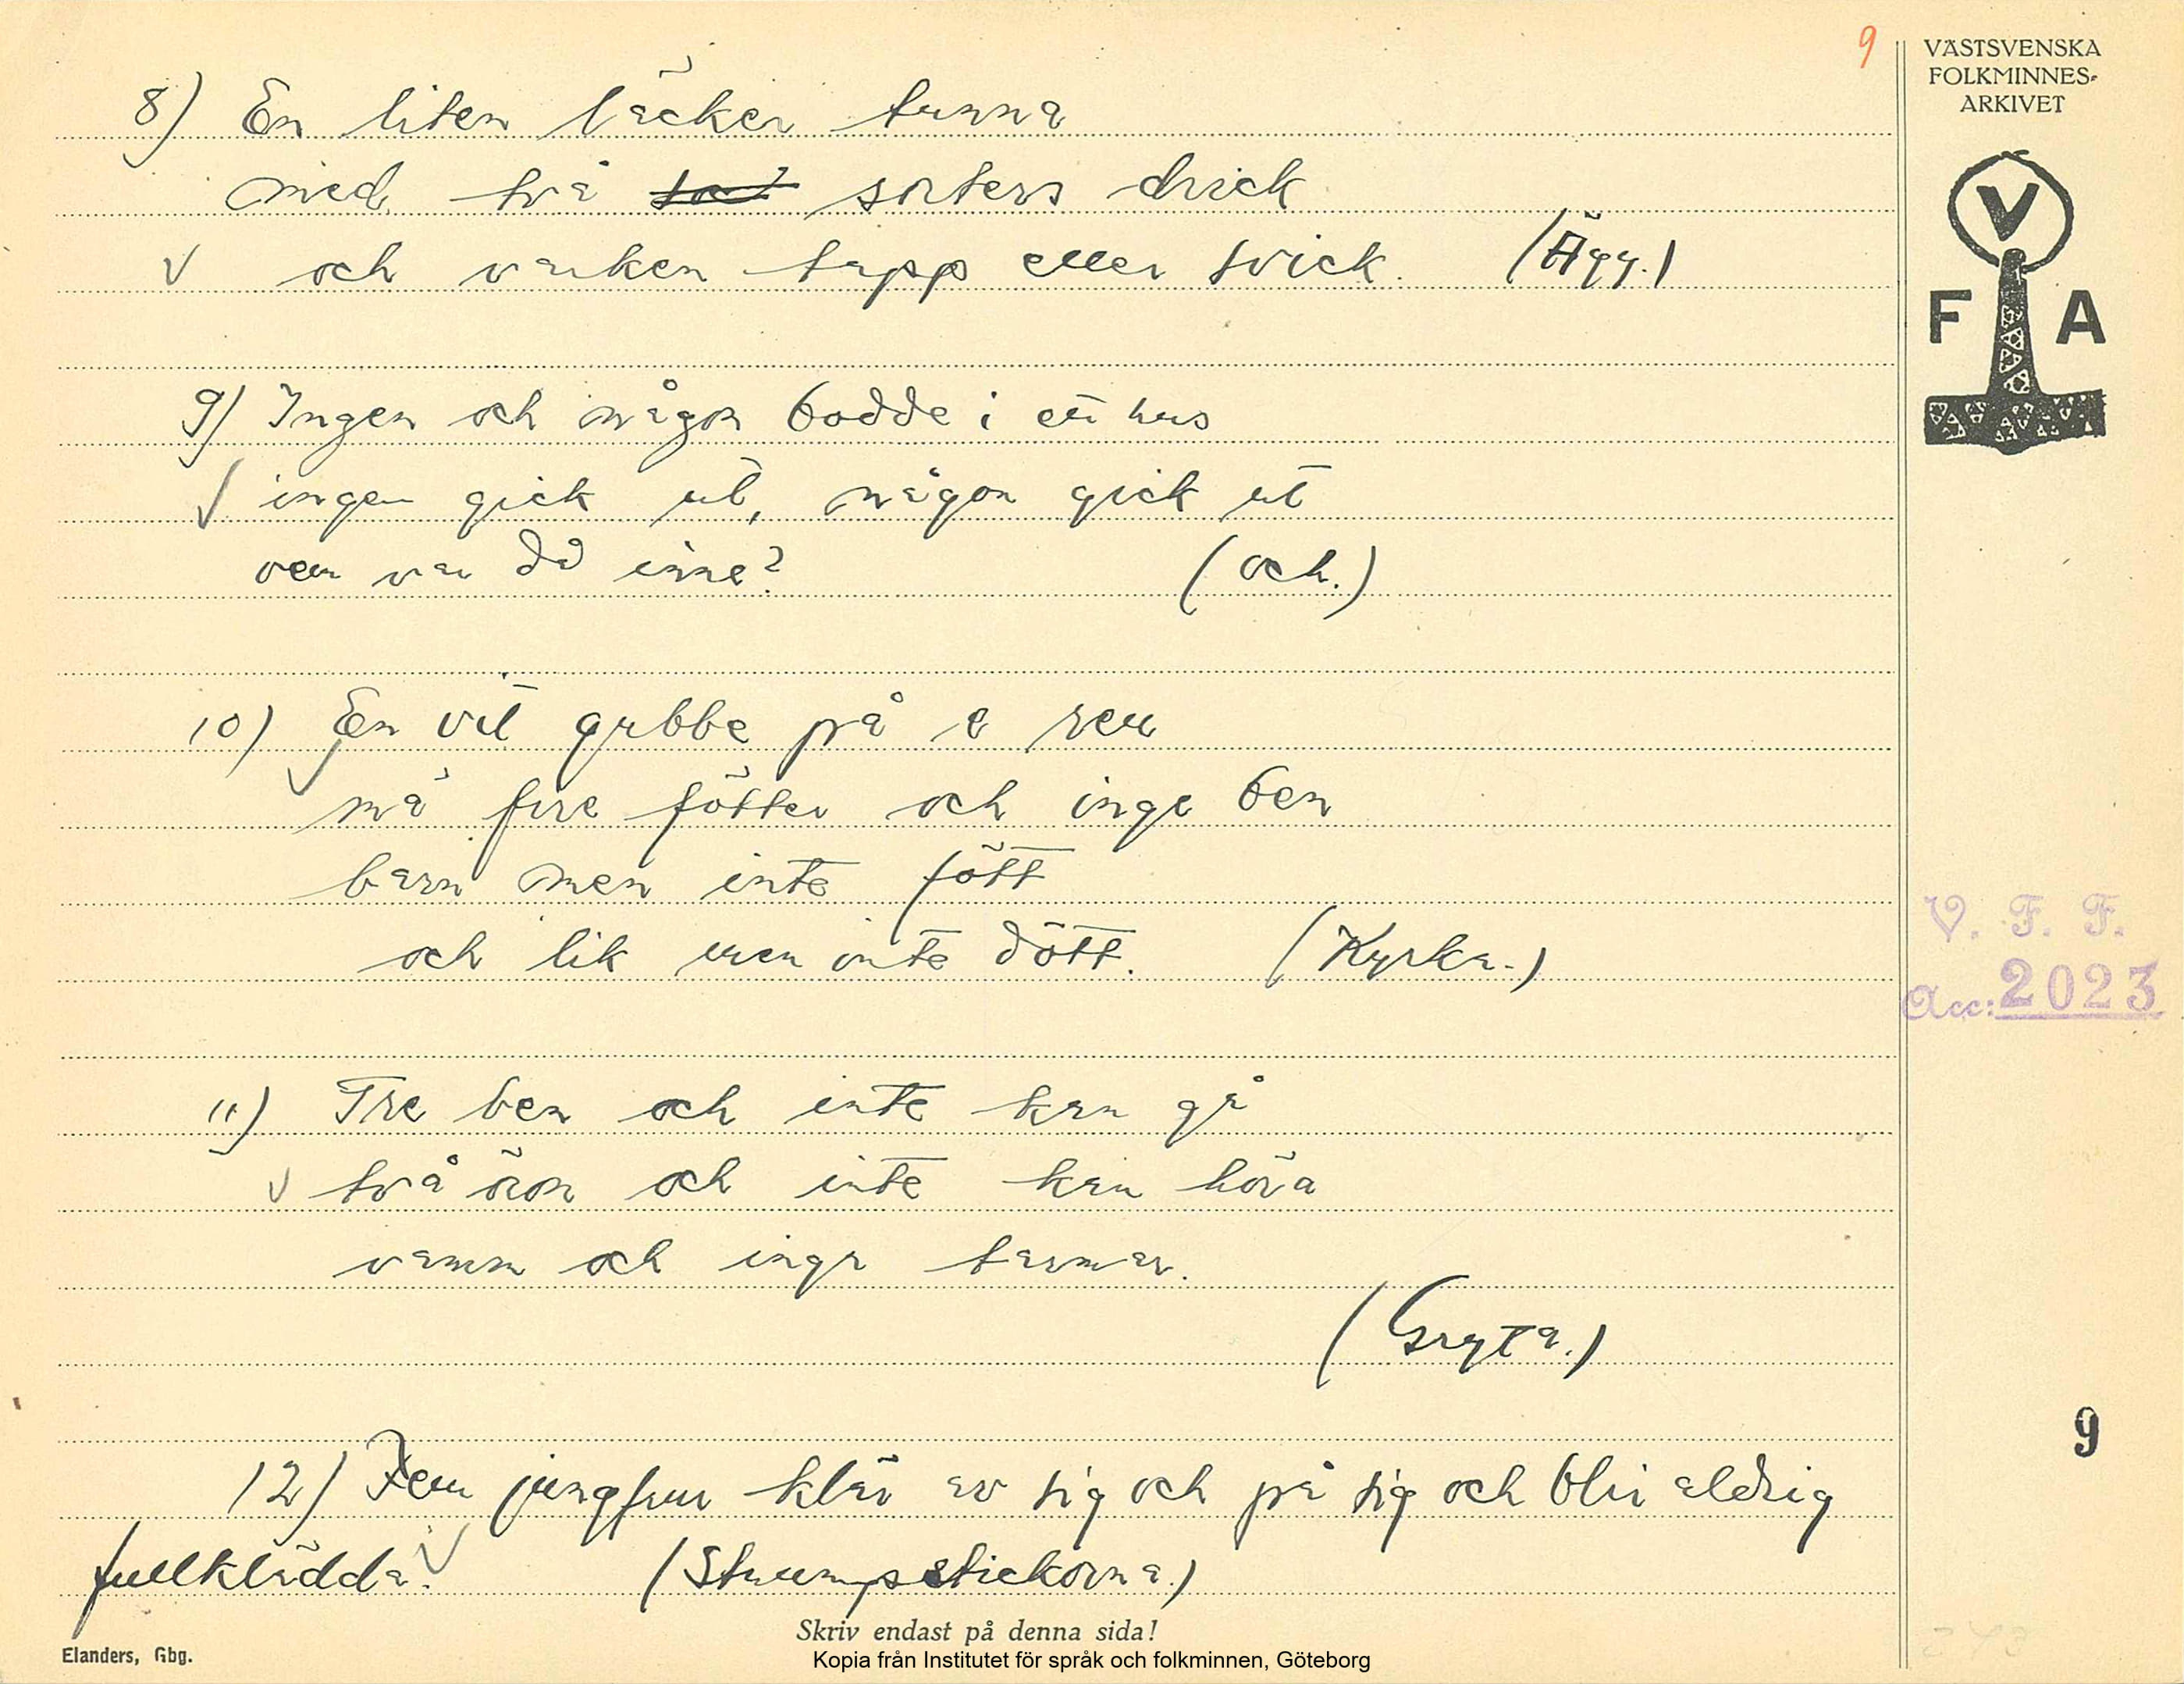 9
VÄSTSVENSKA
FOLKMINNES-
ARKIVET
V
F A
8) En liten läcker tunna
med två sorters drick
och varken tapp eller svick. (Ägg.)
9) Ingen och någon bodde i ett hus
ingen gick ut, någon gick ut
vem var då inne? (och.)
10) En vit gubbe på e ren
må fire fötter och inge ben
barn men inte fött
och lik men inte dött. (Kyrka.)
11) Tre ben och inte kan gå
två öron och inte kan höra
vamm och inga tarmar.
(Gryta.)
12) Fem jungfrur klär av sig och på sig och blir aldrig
fullklädda. (Strumpstickorna.)
V. F. F.
Acc: 2023
9
Skriv endast på denna sida!
Elanders, Gbg.
Kopia från Institutet för språk och folkminnen, Göteborg